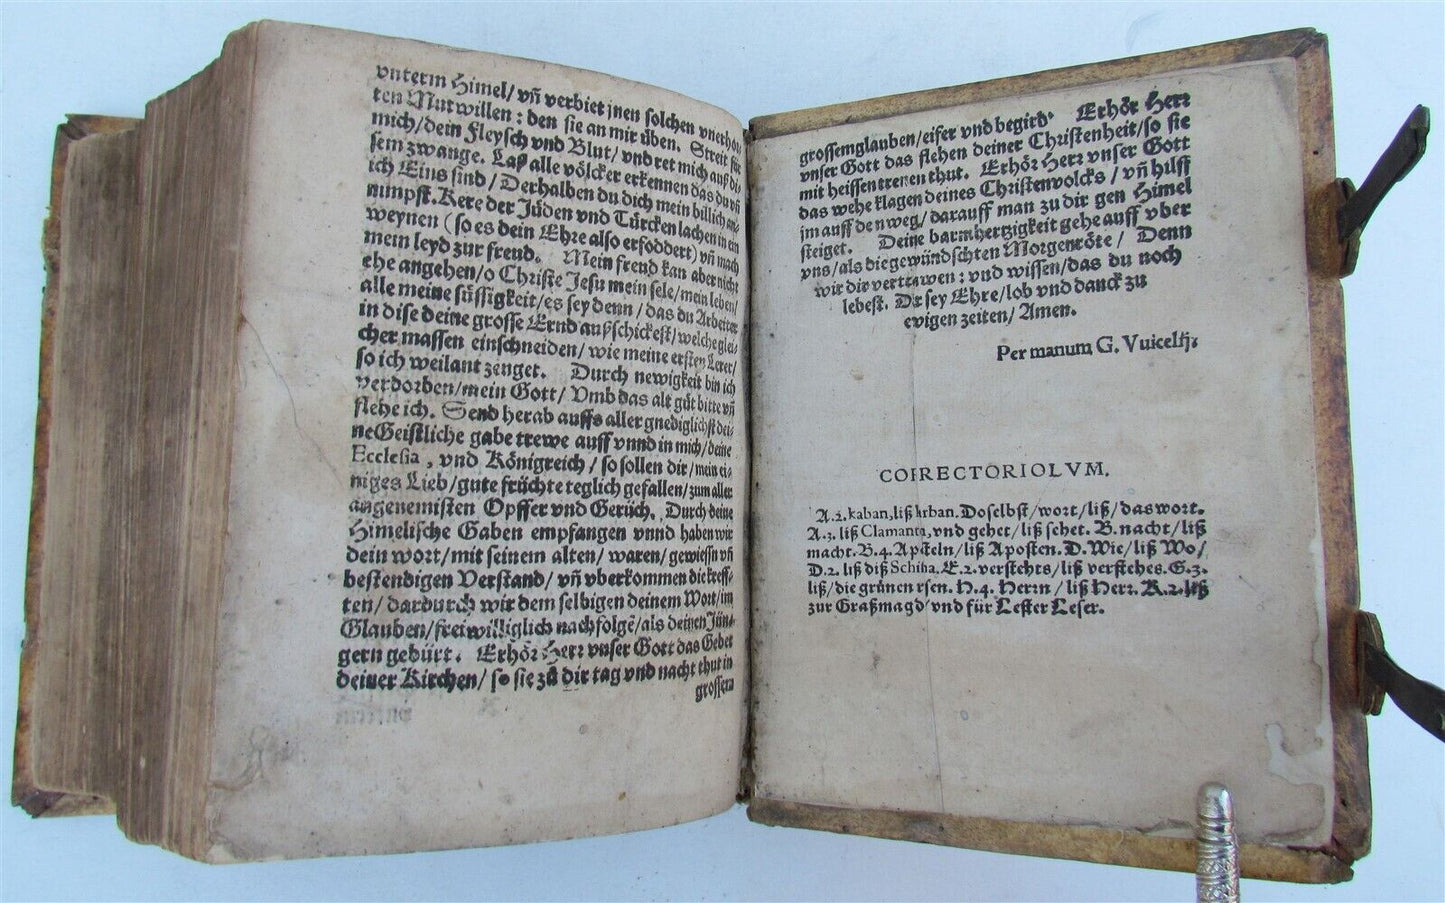 vnterm Himel/ vñ verbiet jnen solchen vnerhör
ten Mutwillen : den sie an mir üben. Streit für
mich/dein Fleysch vnd Blut/ vnd ret mich auß di-
sem zwange. Laß alle völcker erkennen das du vñ
ich Eins sind/ Derhalben du dich mein billich an-
nimpst. Kere der Jüden vnd Türcken lachen in ein
weynen (so es dein Ehre also erföddert) vñ mach
mein leyd zur freud. Mein freud kan aber nicht
ehe angehen/o Christe Jesu mein sele/mein leben/
alle meine süssigkeit/es sey denn/ das du Arbeiter
in dise deine grosse Ernd außschickest/welche glei-
cher massen einschneiden/ wie meine ersten Lerer/
so ich weilant zenget. Durch newigkeit bin ich
verdorben/mein Gott/ Vmb das alt güt bitte vñ
flehe ich. Send herab auffs aller gnediglichst dei-
ne Geistliche gabe trewe auff vnnd in mich/deine
Ecclesia, vnd Königreich/ so sollen dir/mein ei-
niges Lieb/gute früchte teglich gefallen/zum aller
angenemisten Opffer vnd Gerüch. Durch deine
Himelische Gaben empfangen vnnd haben wir
dein wort/mit seinem alten/ waren/gewiessn vñ
bestendigen Verstand/ vñ vberkommen die kreff-
ten/dardurch wir dem selbigen deinem Wort/im
Glauben/freiwilliglich nachfolgẽ/als deinen Jün-
gern gebürt. Erhör Herr vnser Gott das Gebet
deiner Kirchen/ so sie zü dir tag vnd nacht thut in
grossem
grossemglauben/eifer vnd begird. Erhör Herr
vnser Gott das flehen deiner Christenheit/so sie
mit heissen trenen thut. Erhör Herr vnser Gott
das wehe klagen deines Christenvolcks/ vñ hilff
jm auff den weg/darauff man zu dir gen Himel
steiget. Deine barmhertzigkeit gehe auff vber
vns/als die gewündschten Morgenröte/ Denn
wir dir vertrawen : vnd wissen/das du noch
lebest. Dir sey Ehre/lob vnd danck zu
ewigen zeiten/ Amen.
Per manum G. Vuicelij.
CORRECTORIOLVM.
A.2. kaban, liß krban. Doselbst/wort/liß/das wort.
A.3. liß Clamantis, vnd gehet/liß sehet. B. nacht/liß
macht. B.4. Apsteln/liß Aposten. D. Wie/liß Wo/
D.2. liß diß Schiha, E.2. verstehts/liß verstehes. G.3.
liß/die grünen rsen. H.4. Herrn/liß Herr. K.2. liß
zur Graßmagd/vnd für Lester Leser.